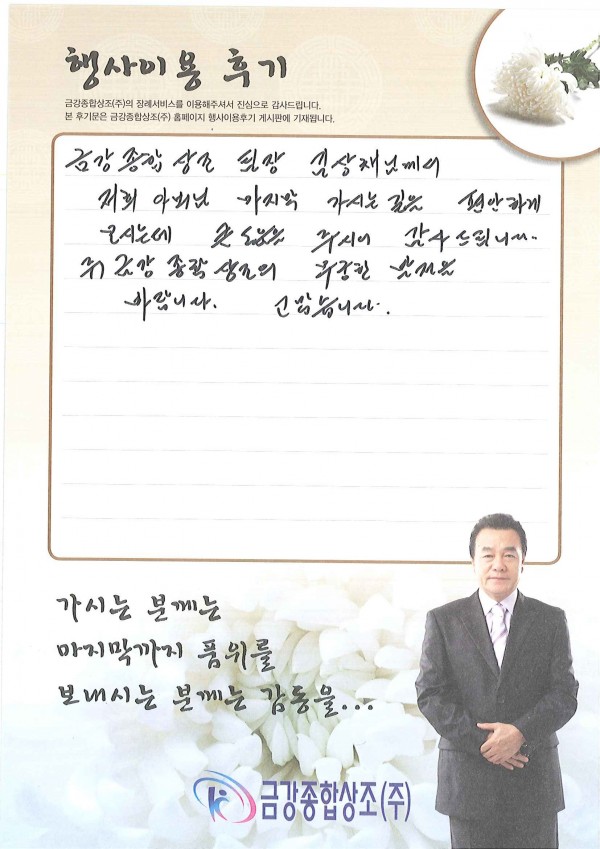 행사이용 후기
금강종합상조(주)의 장례서비스를 이용해주셔서 진심으로 감사드립니다.
본 후기문은 금강종합상조(주) 홈페이지 행사이용후기 게시판에 기재됩니다.
금강 종합 상조 팀장 김상채님께서
저희 아버님 마지막 가시는 길을 편안하게
모시는데 큰 도움을 주시어 감사드립니다.
주) 금강 종합 상조의 무궁한 발전을
바랍니다. 고맙습니다.
가시는 분께는
마지막까지 품위를
보내시는 분께는 감동을...
금강종합상조(주)